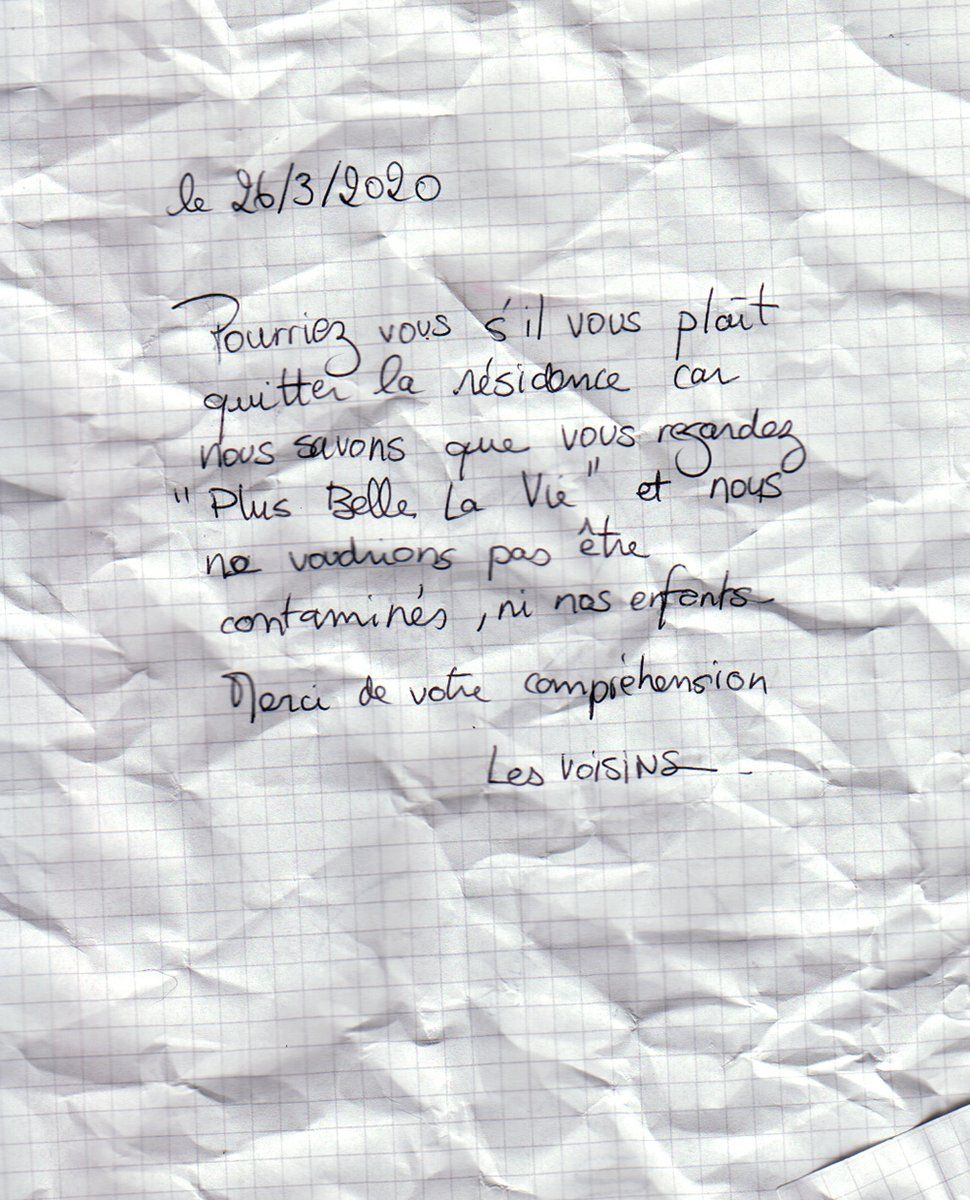 le 26/3/2020
Pourriez vous s'il vous plaît
quitter la résidence car
nous savons que vous regardez
"Plus Belle La Vie" et nous
ne voudrions pas être
contaminés, ni nos enfants
Merci de votre compréhension
Les voisins.